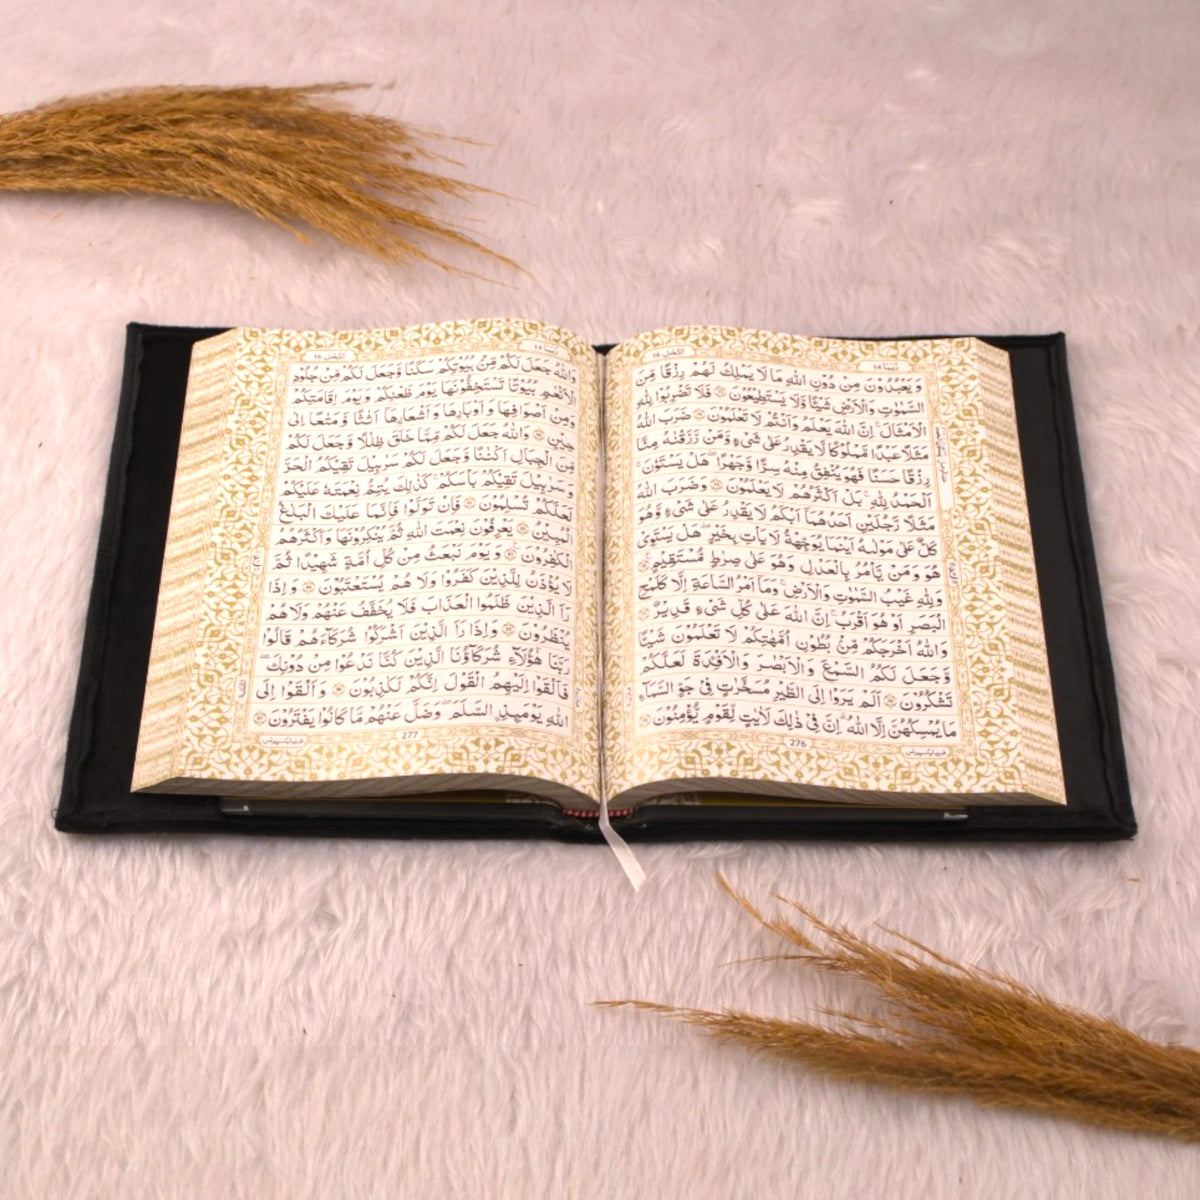 النحل ١٦
ربما ١٤
وَيَعْبُدُوْنَ مِنْ دُوْنِ اللّٰهِ مَا لَا يَمْلِكُ لَهُمْ رِزْقًا مِّنَ
السَّمٰوٰتِ وَالْاَرْضِ شَيْئًا وَّلَا يَسْتَطِيْعُوْنَ ۝ فَلَا تَضْرِبُوْا لِلّٰهِ
الْاَمْثَالَ ؕ اِنَّ اللّٰهَ يَعْلَمُ وَاَنْتُمْ لَا تَعْلَمُوْنَ ۝ ضَرَبَ اللّٰهُ
مَثَلًا عَبْدًا مَّمْلُوْكًا لَّا يَقْدِرُ عَلٰى شَيْءٍ وَّمَنْ رَّزَقْنٰهُ مِنَّا
رِزْقًا حَسَنًا فَهُوَ يُنْفِقُ مِنْهُ سِرًّا وَّجَهْرًا ؕ هَلْ يَسْتَوٗنَ ؕ
اَلْحَمْدُ لِلّٰهِ ؕ بَلْ اَكْثَرُهُمْ لَا يَعْلَمُوْنَ ۝ وَضَرَبَ اللّٰهُ
مَثَلًا رَّجُلَيْنِ اَحَدُهُمَاۤ اَبْكَمُ لَا يَقْدِرُ عَلٰى شَيْءٍ وَّهُوَ
كَلٌّ عَلٰى مَوْلٰىهُ ۙ اَيْنَمَا يُوَجِّهْهُّ لَا يَاْتِ بِخَيْرٍ ؕ هَلْ يَسْتَوِيْ
هُوَ ۙ وَمَنْ يَّاْمُرُ بِالْعَدْلِ ۙ وَهُوَ عَلٰى صِرَاطٍ مُّسْتَقِيْمٍ ۝
وَلِلّٰهِ غَيْبُ السَّمٰوٰتِ وَالْاَرْضِ ؕ وَمَاۤ اَمْرُ السَّاعَةِ اِلَّا كَلَمْحِ
الْبَصَرِ اَوْ هُوَ اَقْرَبُ ؕ اِنَّ اللّٰهَ عَلٰى كُلِّ شَيْءٍ قَدِيْرٌ ۝
وَاللّٰهُ اَخْرَجَكُمْ مِّنْۢ بُطُوْنِ اُمَّهٰتِكُمْ لَا تَعْلَمُوْنَ شَيْئًا ۙ
وَّجَعَلَ لَكُمُ السَّمْعَ وَالْاَبْصَارَ وَالْاَفْئِدَةَ ۙ لَعَلَّكُمْ
تَشْكُرُوْنَ ۝ اَلَمْ يَرَوْا اِلَى الطَّيْرِ مُسَخَّرٰتٍ فِيْ جَوِّ السَّمَآءِ ؕ
مَا يُمْسِكُهُنَّ اِلَّا اللّٰهُ ؕ اِنَّ فِيْ ذٰلِكَ لَاٰيٰتٍ لِّقَوْمٍ يُّؤْمِنُوْنَ ۝
276
ربما ١٤
النحل ١٦
وَاللّٰهُ جَعَلَ لَكُمْ مِّنْۢ بُيُوْتِكُمْ سَكَنًا وَّجَعَلَ لَكُمْ مِّنْ جُلُوْدِ
الْاَنْعَامِ بُيُوْتًا تَسْتَخِفُّوْنَهَا يَوْمَ ظَعْنِكُمْ وَيَوْمَ اِقَامَتِكُمْ ۙ
وَمِنْ اَصْوَافِهَا وَاَوْبَارِهَا وَاَشْعَارِهَاۤ اَثَاثًا وَّمَتَاعًا اِلٰى
حِيْنٍ ۝ وَاللّٰهُ جَعَلَ لَكُمْ مِّمَّا خَلَقَ ظِلٰلًا وَّجَعَلَ لَكُمْ
مِّنَ الْجِبَالِ اَكْنَانًا وَّجَعَلَ لَكُمْ سَرَابِيْلَ تَقِيْكُمُ الْحَرَّ
وَسَرَابِيْلَ تَقِيْكُمْ بَاْسَكُمْ ؕ كَذٰلِكَ يُتِمُّ نِعْمَتَهٗ عَلَيْكُمْ
لَعَلَّكُمْ تُسْلِمُوْنَ ۝ فَاِنْ تَوَلَّوْا فَاِنَّمَا عَلَيْكَ الْبَلٰغُ
الْمُبِيْنُ ۝ يَعْرِفُوْنَ نِعْمَتَ اللّٰهِ ثُمَّ يُنْكِرُوْنَهَا وَاَكْثَرُهُمُ
الْكٰفِرُوْنَ ۝ وَيَوْمَ نَبْعَثُ مِنْ كُلِّ اُمَّةٍ شَهِيْدًا ثُمَّ
لَا يُؤْذَنُ لِلَّذِيْنَ كَفَرُوْا وَلَا هُمْ يُسْتَعْتَبُوْنَ ۝ وَاِذَا
رَاَ الَّذِيْنَ ظَلَمُوا الْعَذَابَ فَلَا يُخَفَّفُ عَنْهُمْ وَلَا هُمْ
يُنْظَرُوْنَ ۝ وَاِذَا رَاَ الَّذِيْنَ اَشْرَكُوْا شُرَكَآءَهُمْ قَالُوْا
رَبَّنَا هٰۤؤُلَآءِ شُرَكَآؤُنَا الَّذِيْنَ كُنَّا نَدْعُوْا مِنْ دُوْنِكَ ۚ
فَاَلْقَوْا اِلَيْهِمُ الْقَوْلَ اِنَّكُمْ لَكٰذِبُوْنَ ۝ وَاَلْقَوْا اِلَى
اللّٰهِ يَوْمَئِذِ ۨالسَّلَمَ وَضَلَّ عَنْهُمْ مَّا كَانُوْا يَفْتَرُوْنَ ۝
277